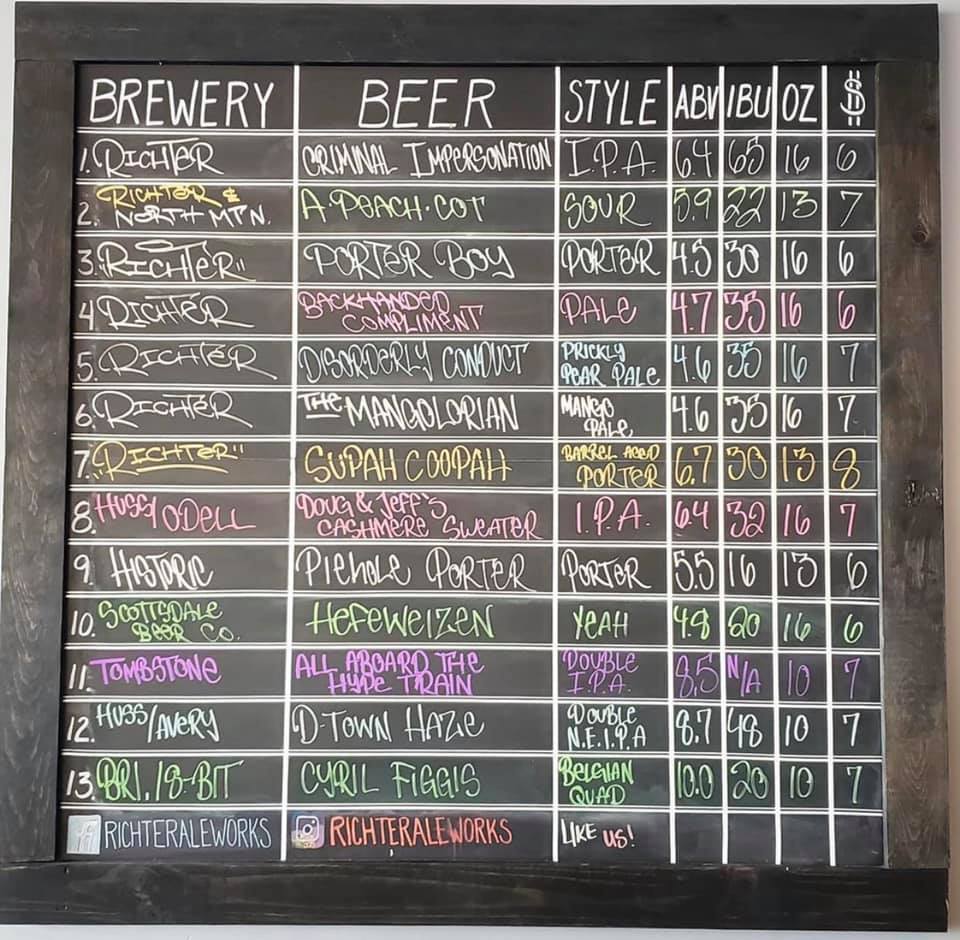 BREWERY BEER STYLE ABV IBU OZ $
1. RICHTER CRIMINAL IMPERSONATION I.P.A. 6.4 65 16 6
2. RICHTER & NORTH MTN. A·PEACH·COT SOUR 5.9 22 13 7
3. "RICHTER" PORTER BOY PORTER 4.5 30 16 6
4. RICHTER BACKHANDED COMPLIMENT PALE 4.7 35 16 6
5. RICHTER DISORDERLY CONDUCT PRICKLY PEAR PALE 4.6 35 16 7
6. RICHTER THE MANGOLORIAN MANGO PALE 4.6 35 16 7
7. "RICHTER" SUPAH COOPAH BARREL AGED PORTER 6.7 30 13 8
8. HUSS/ODELL DOUG & JEFF'S CASHMERE SWEATER I.P.A. 6.4 32 16 7
9. HISTORIC PIEHOLE PORTER PORTER 5.5 16 13 6
10. SCOTTSDALE BEER CO. HEFEWEIZEN YEAH 4.8 20 16 6
11. TOMBSTONE ALL ABOARD THE HYPE TRAIN DOUBLE I.P.A. 8.5 N/A 10 7
12. HUSS/AVERY D-TOWN HAZE DOUBLE N.E.I.P.A 8.7 48 10 7
13. BRI./8-BIT CYRIL FIGGIS BELGIAN QUAD 10.0 20 10 7
RICHTERALEWORKS RICHTERALEWORKS LIKE US!